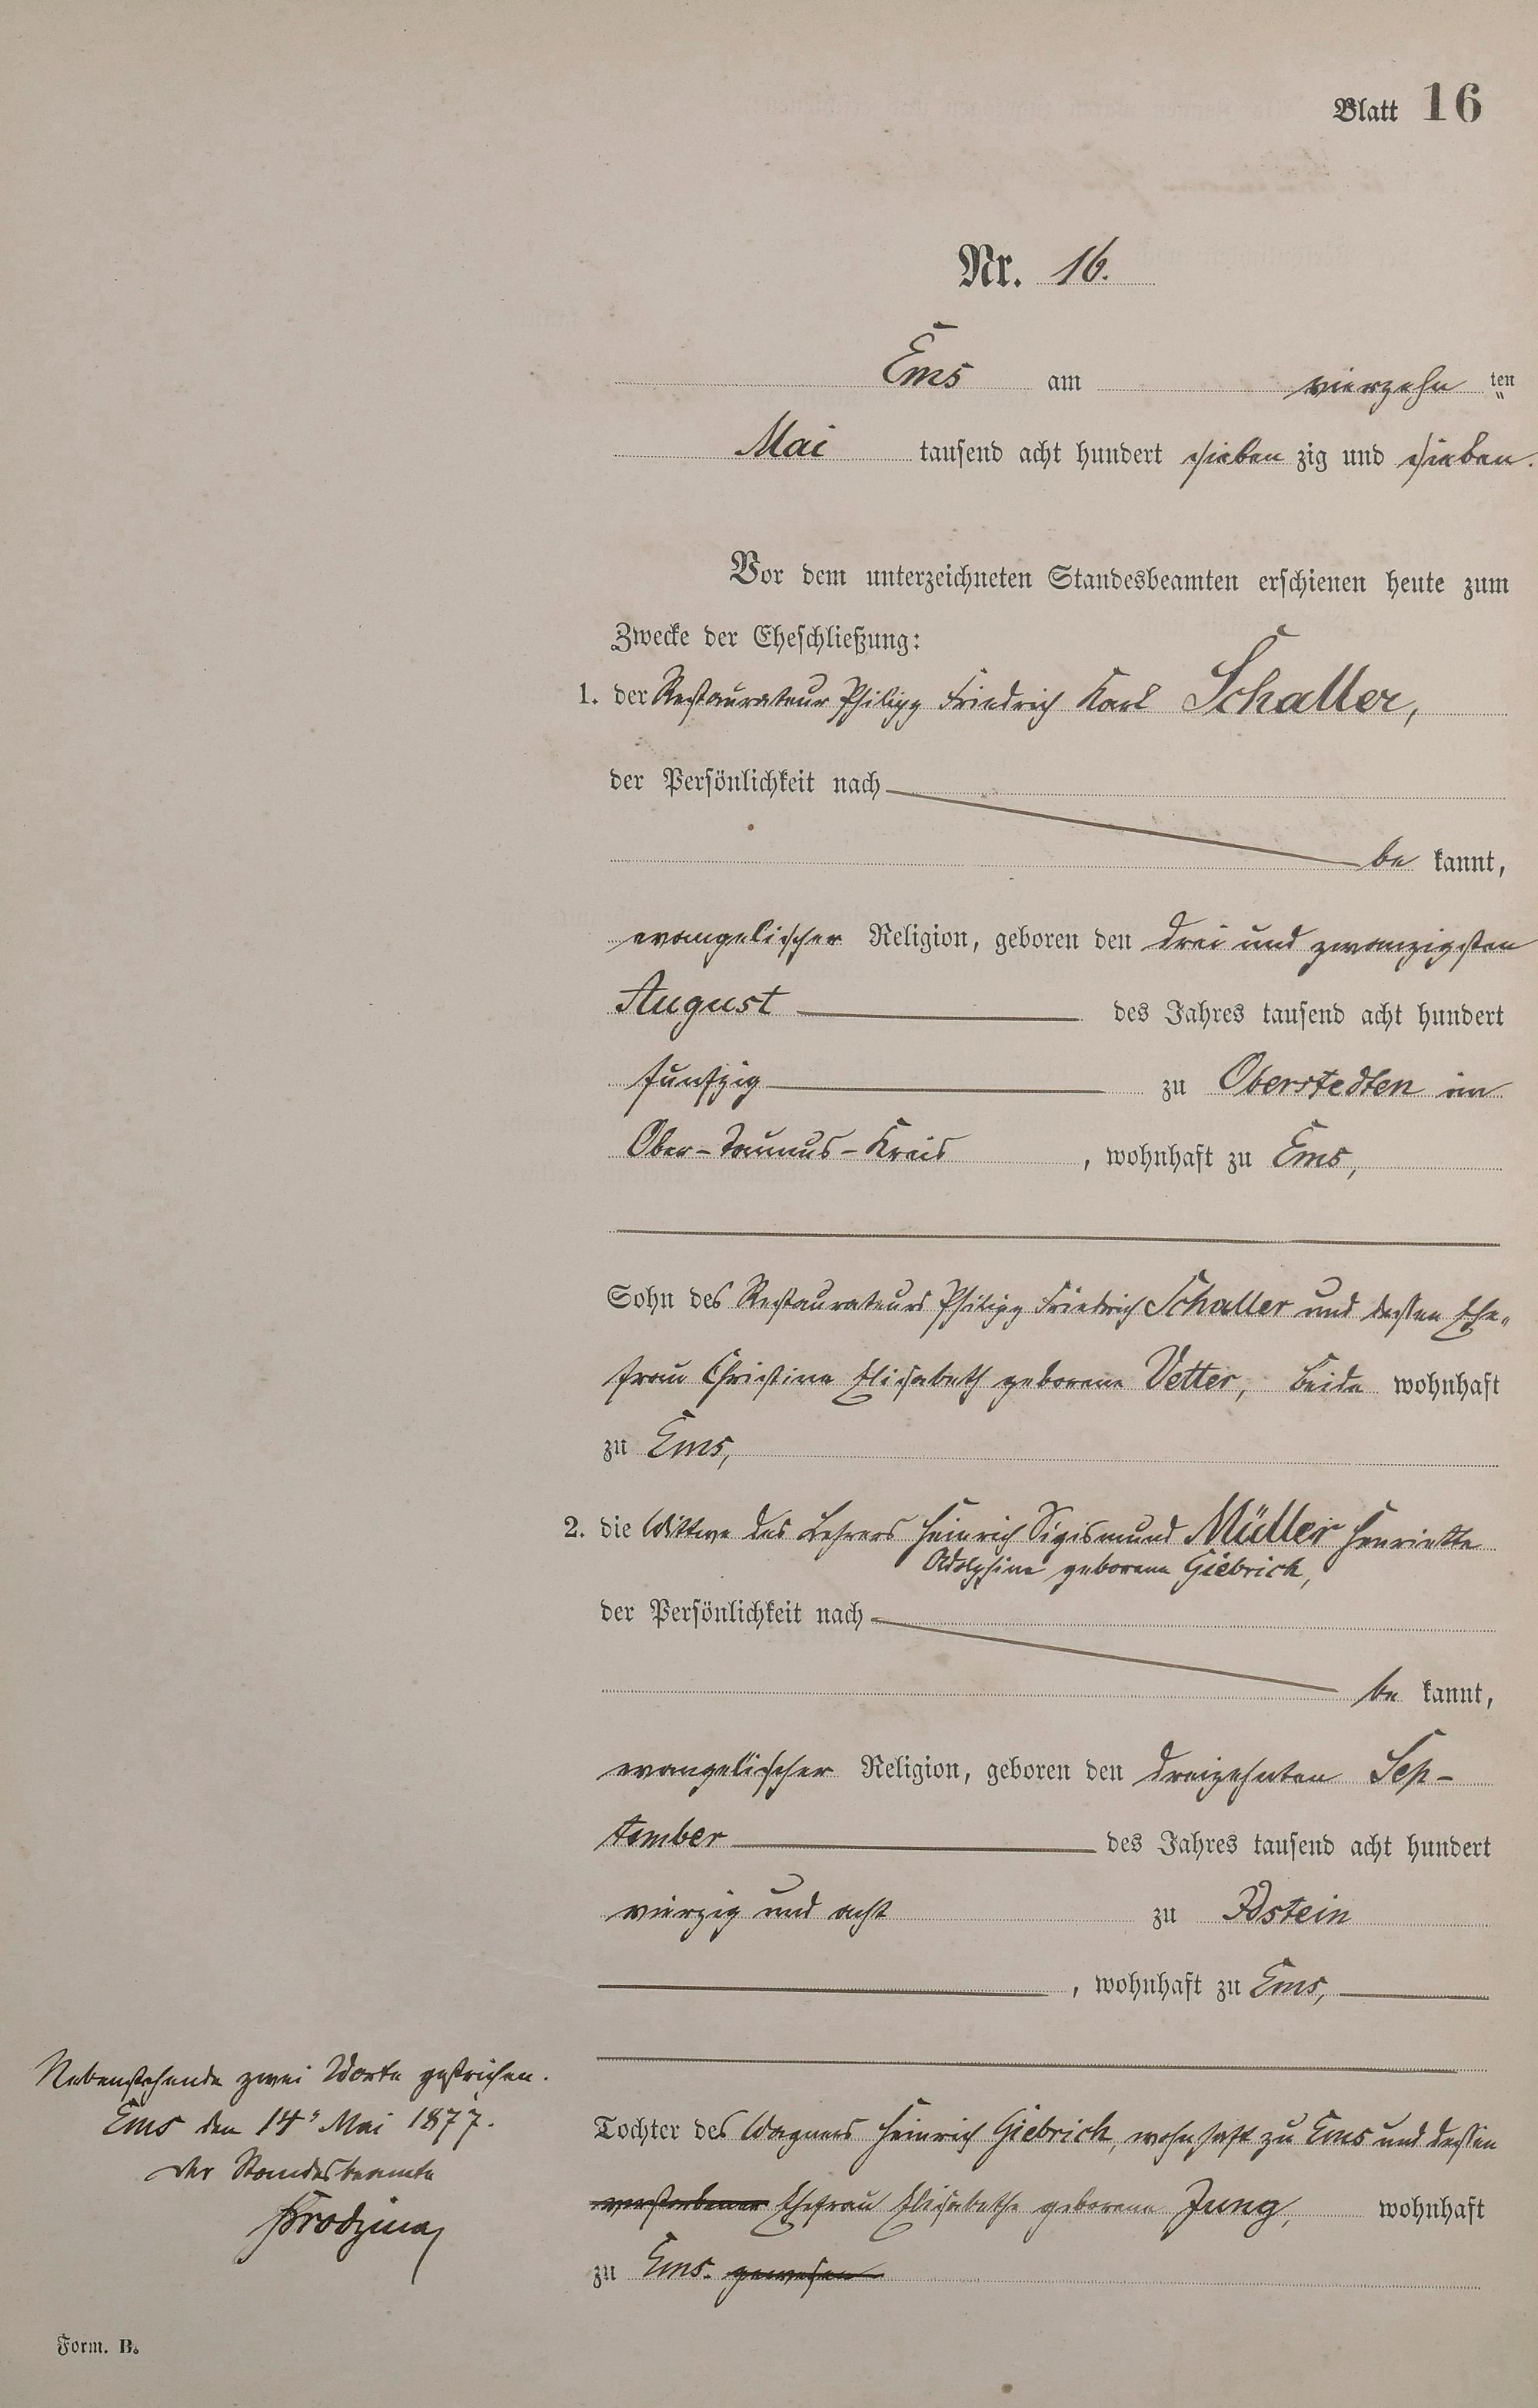 Blatt 16
Nr. 16.
Ems am vierzehn ten
Mai tausend acht hundert sieben zig und sieben.
Vor dem unterzeichneten Standesbeamten erschienen heute zum
Zwecke der Eheschließung:
1. der Restaurateur Philipp Friedrich Karl Schaller,
der Persönlichkeit nach
be kannt,
evangelischer Religion, geboren den drei und zwanzigsten
August des Jahres tausend acht hundert
funfzig zu Oberstedten im
Ober-Taunus-Kreis, wohnhaft zu Ems,
Sohn des Restaurateurs Philipp Friedrich Schaller und dessen Ehe„
frau Christine Elisabeth geborene Vetter, beide wohnhaft
zu Ems,
2. die Wittwe des Lehrers Heinrich Sigismund Müller Henriette
Adolphine geborene Giebrich,
der Persönlichkeit nach
be kannt,
evangelischer Religion, geboren den dreizehnten Sep-
tember des Jahres tausend acht hundert
vierzig und acht zu Idstein
, wohnhaft zu Ems,
Tochter des Wagners Heinrich Giebrich, wohnhaft zu Ems und dessen
verstorbener Ehefrau Elisabethe geborene Jung, wohnhaft
zu Ems. gewesen
Nebenstehende zwei Worte gestrichen.
Ems den 14s Mai 1877.
Der Standesbeamte
Form. B.